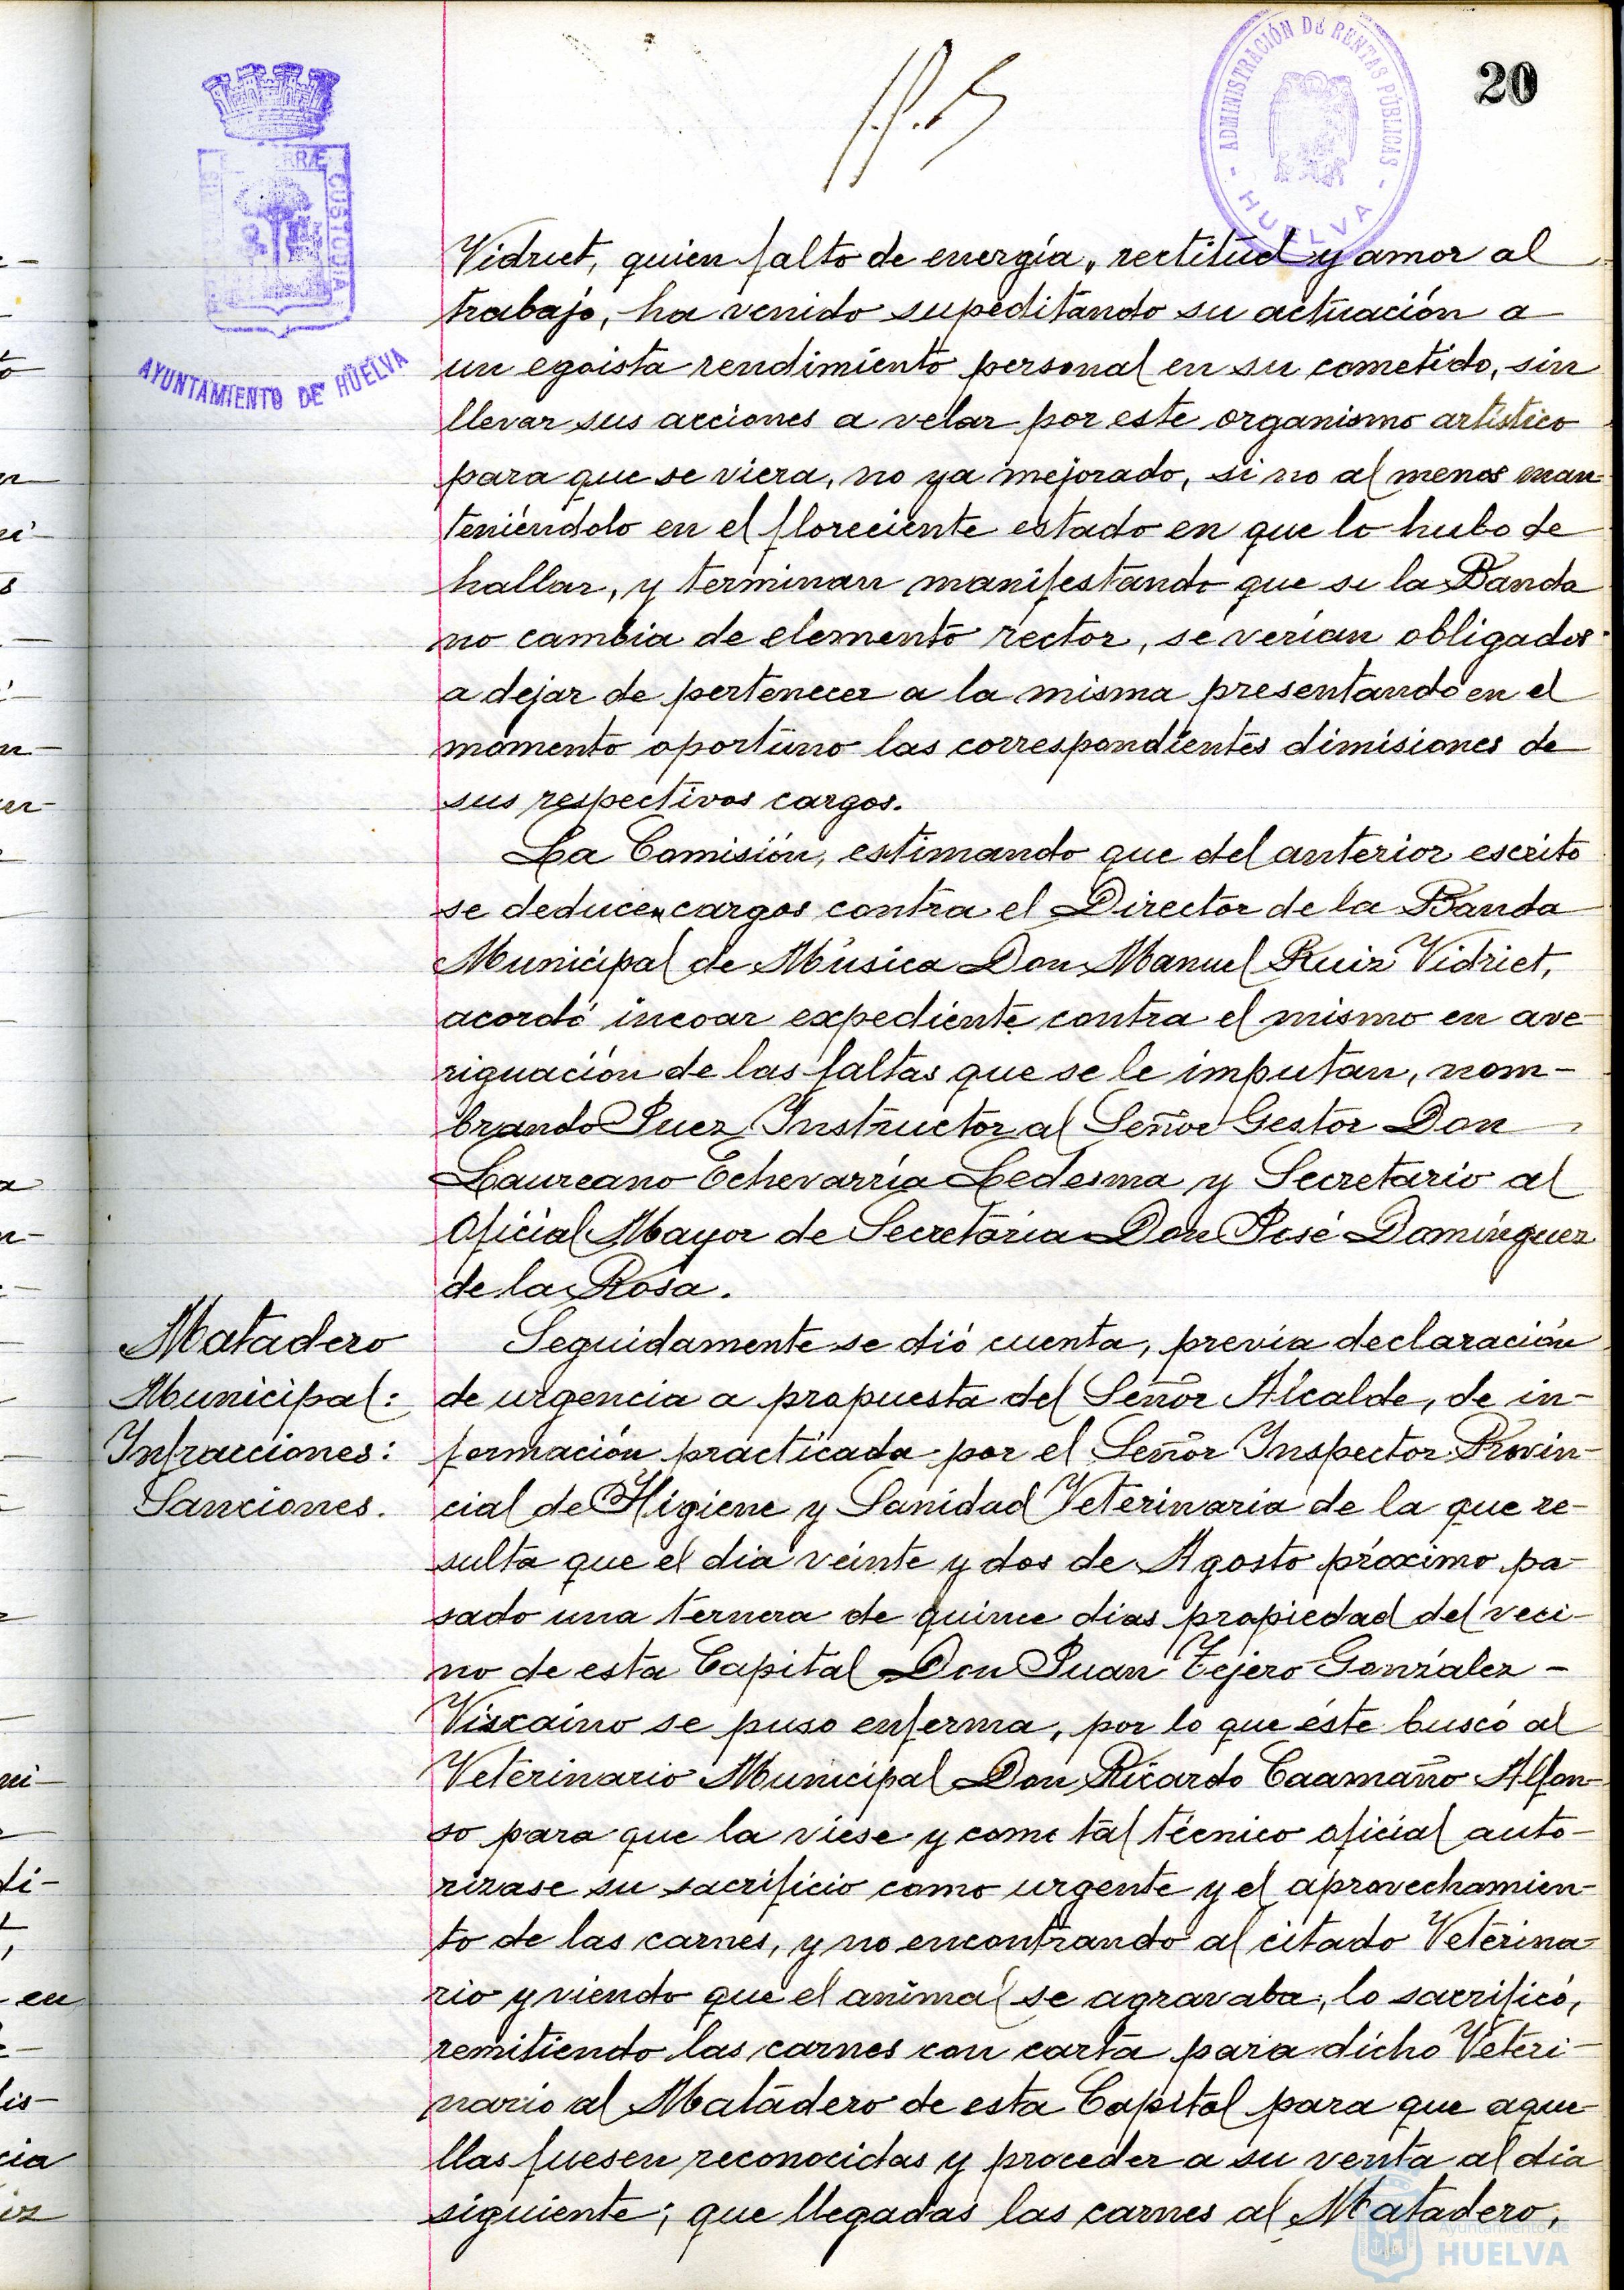 20
ADMINISTRACIÓN DE RENTAS PÚBLICAS
- HUELVA -
CUSTODIA
AYUNTAMIENTO DE HUELVA
Vidriet, quien falto de energía, rectitud y amor al
trabajo, ha venido supeditando su actuación a
un egoista rendimiento personal en su cometido, sin
llevar sus acciones a velar por este organismo artístico
para que se viera, no ya mejorado, si no al menos man-
teniéndolo en el floreciente estado en que lo hubo de
hallar, y terminan manifestando que si la Banda
no cambia de elemento rector, se verían obligados
a dejar de pertenecer a la misma presentando en el
momento oportuno las correspondientes dimisiones de
sus respectivos cargos.
La Comisión, estimando que del anterior escrito
se deducen cargos contra el Director de la Banda
Municipal de Música Don Manuel Ruiz Vidriet,
acordó incoar expediente contra el mismo en ave-
riguación de las faltas que se le imputan, nom-
brando Juez Instructor al Señor Gestor Don
Laureano Echevarría Ledesma y Secretario al
Oficial Mayor de Secretaría Don José Domínguez
de la Rosa.
Matadero
Municipal:
Infracciones:
Sanciones.
Seguidamente se dió cuenta, previa declaración
de urgencia a propuesta del Señor Alcalde, de in-
formación practicada por el Señor Inspector Provin-
cial de Higiene y Sanidad Veterinaria de la que re-
sulta que el dia veinte y dos de Agosto próximo pa-
sado una ternera de quince dias propiedad del veci-
no de esta Capital Don Juan Tejero González -
Vizcaino se puso enferma, por lo que éste buscó al
Veterinario Municipal Don Ricardo Caamaño Alfon-
so para que la viese y como tal técnico oficial auto-
rizase su sacrificio como urgente y el aprovechamien-
to de las carnes, y no encontrando al citado Veterina-
rio y viendo que el animal se agravaba, lo sacrificó,
remitiendo las carnes con carta para dicho Veteri-
nario al Matadero de esta Capital para que aque-
llas fuesen reconocidas y proceder a su venta al día
siguiente; que llegadas las carnes al Matadero,
Ayuntamiento de
HUELVA